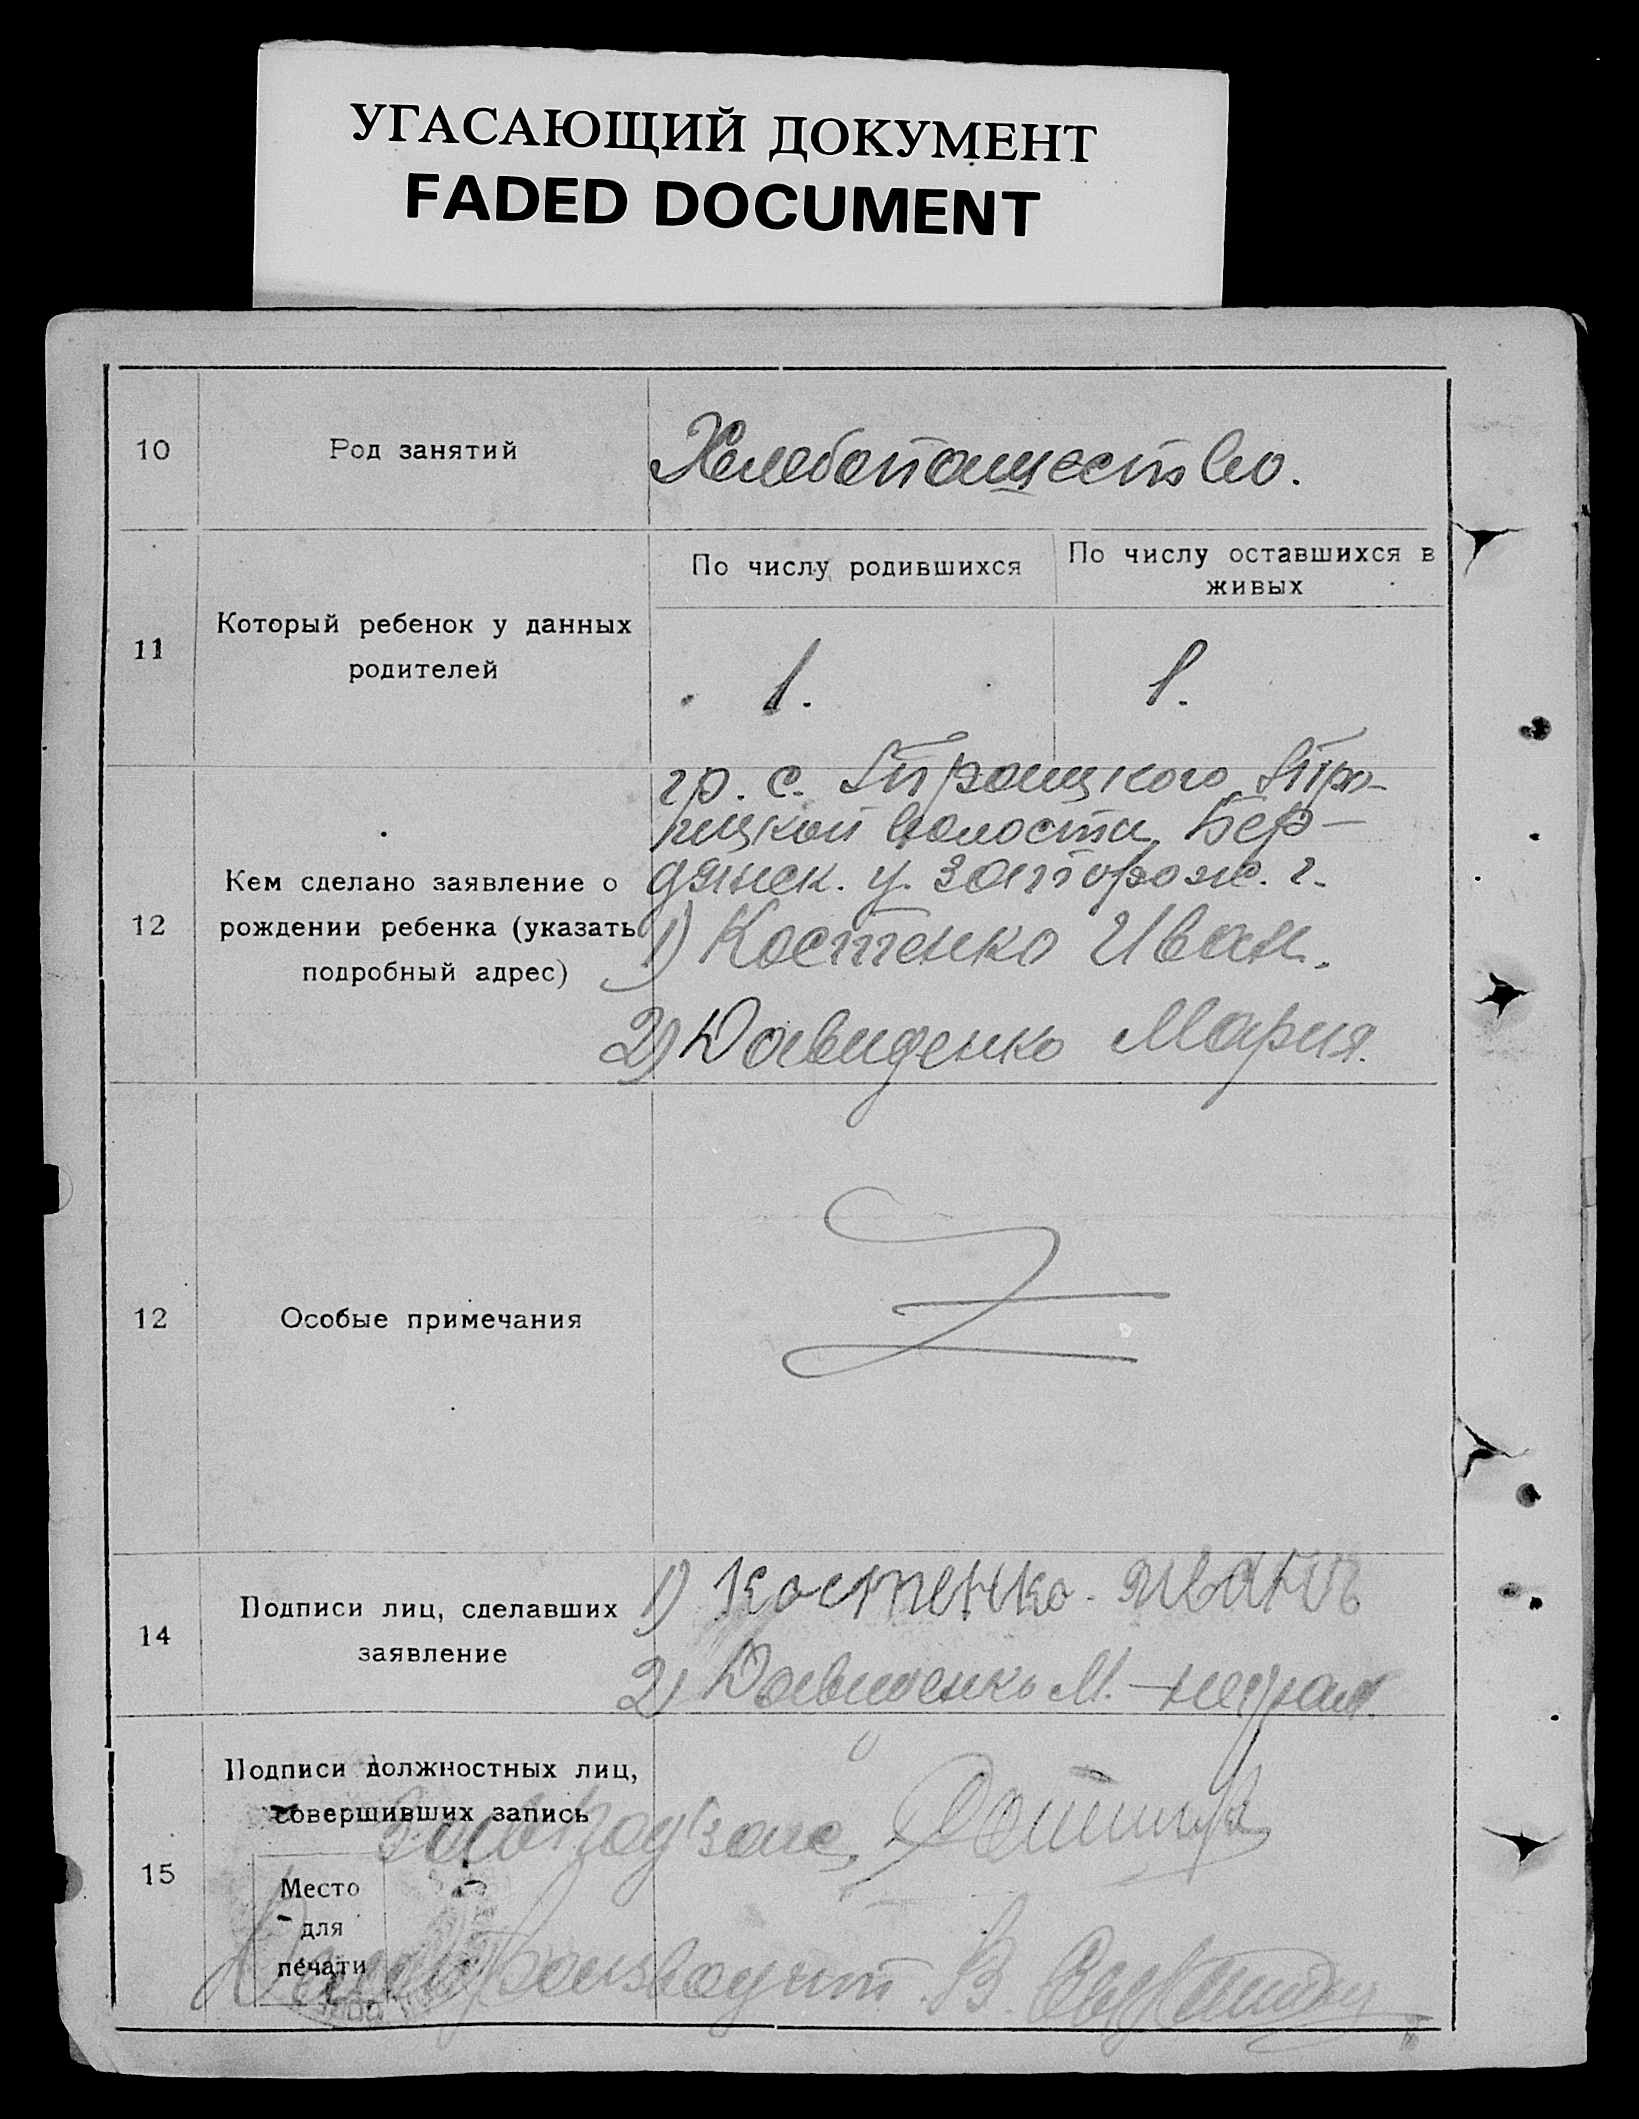 УГАСАЮЩИЙ ДОКУМЕНТ
FADED DOCUMENT
10 Род занятий Хлебопашество.
11 Который ребенок у данных
родителей
По числу родившихся
По числу оставшихся в
живых
1. 1.
12 Кем сделано заявление о
рождении ребенка (указать
подробный адрес)
гр. с. Троицкого Тро-
ицкой волости Бер-
дянск. у. запорож. г.
1) Костенко Иван.
2) Давиденко Мария.
12 Особые примечания
14 Подписи лиц, сделавших
заявление
1) Костенко
2) Давиденко М. - неграм.
15 Подписи должностных лиц,
совершивших запись
Зав. подзагс
Место
для
печати
Делопроизводит. В.